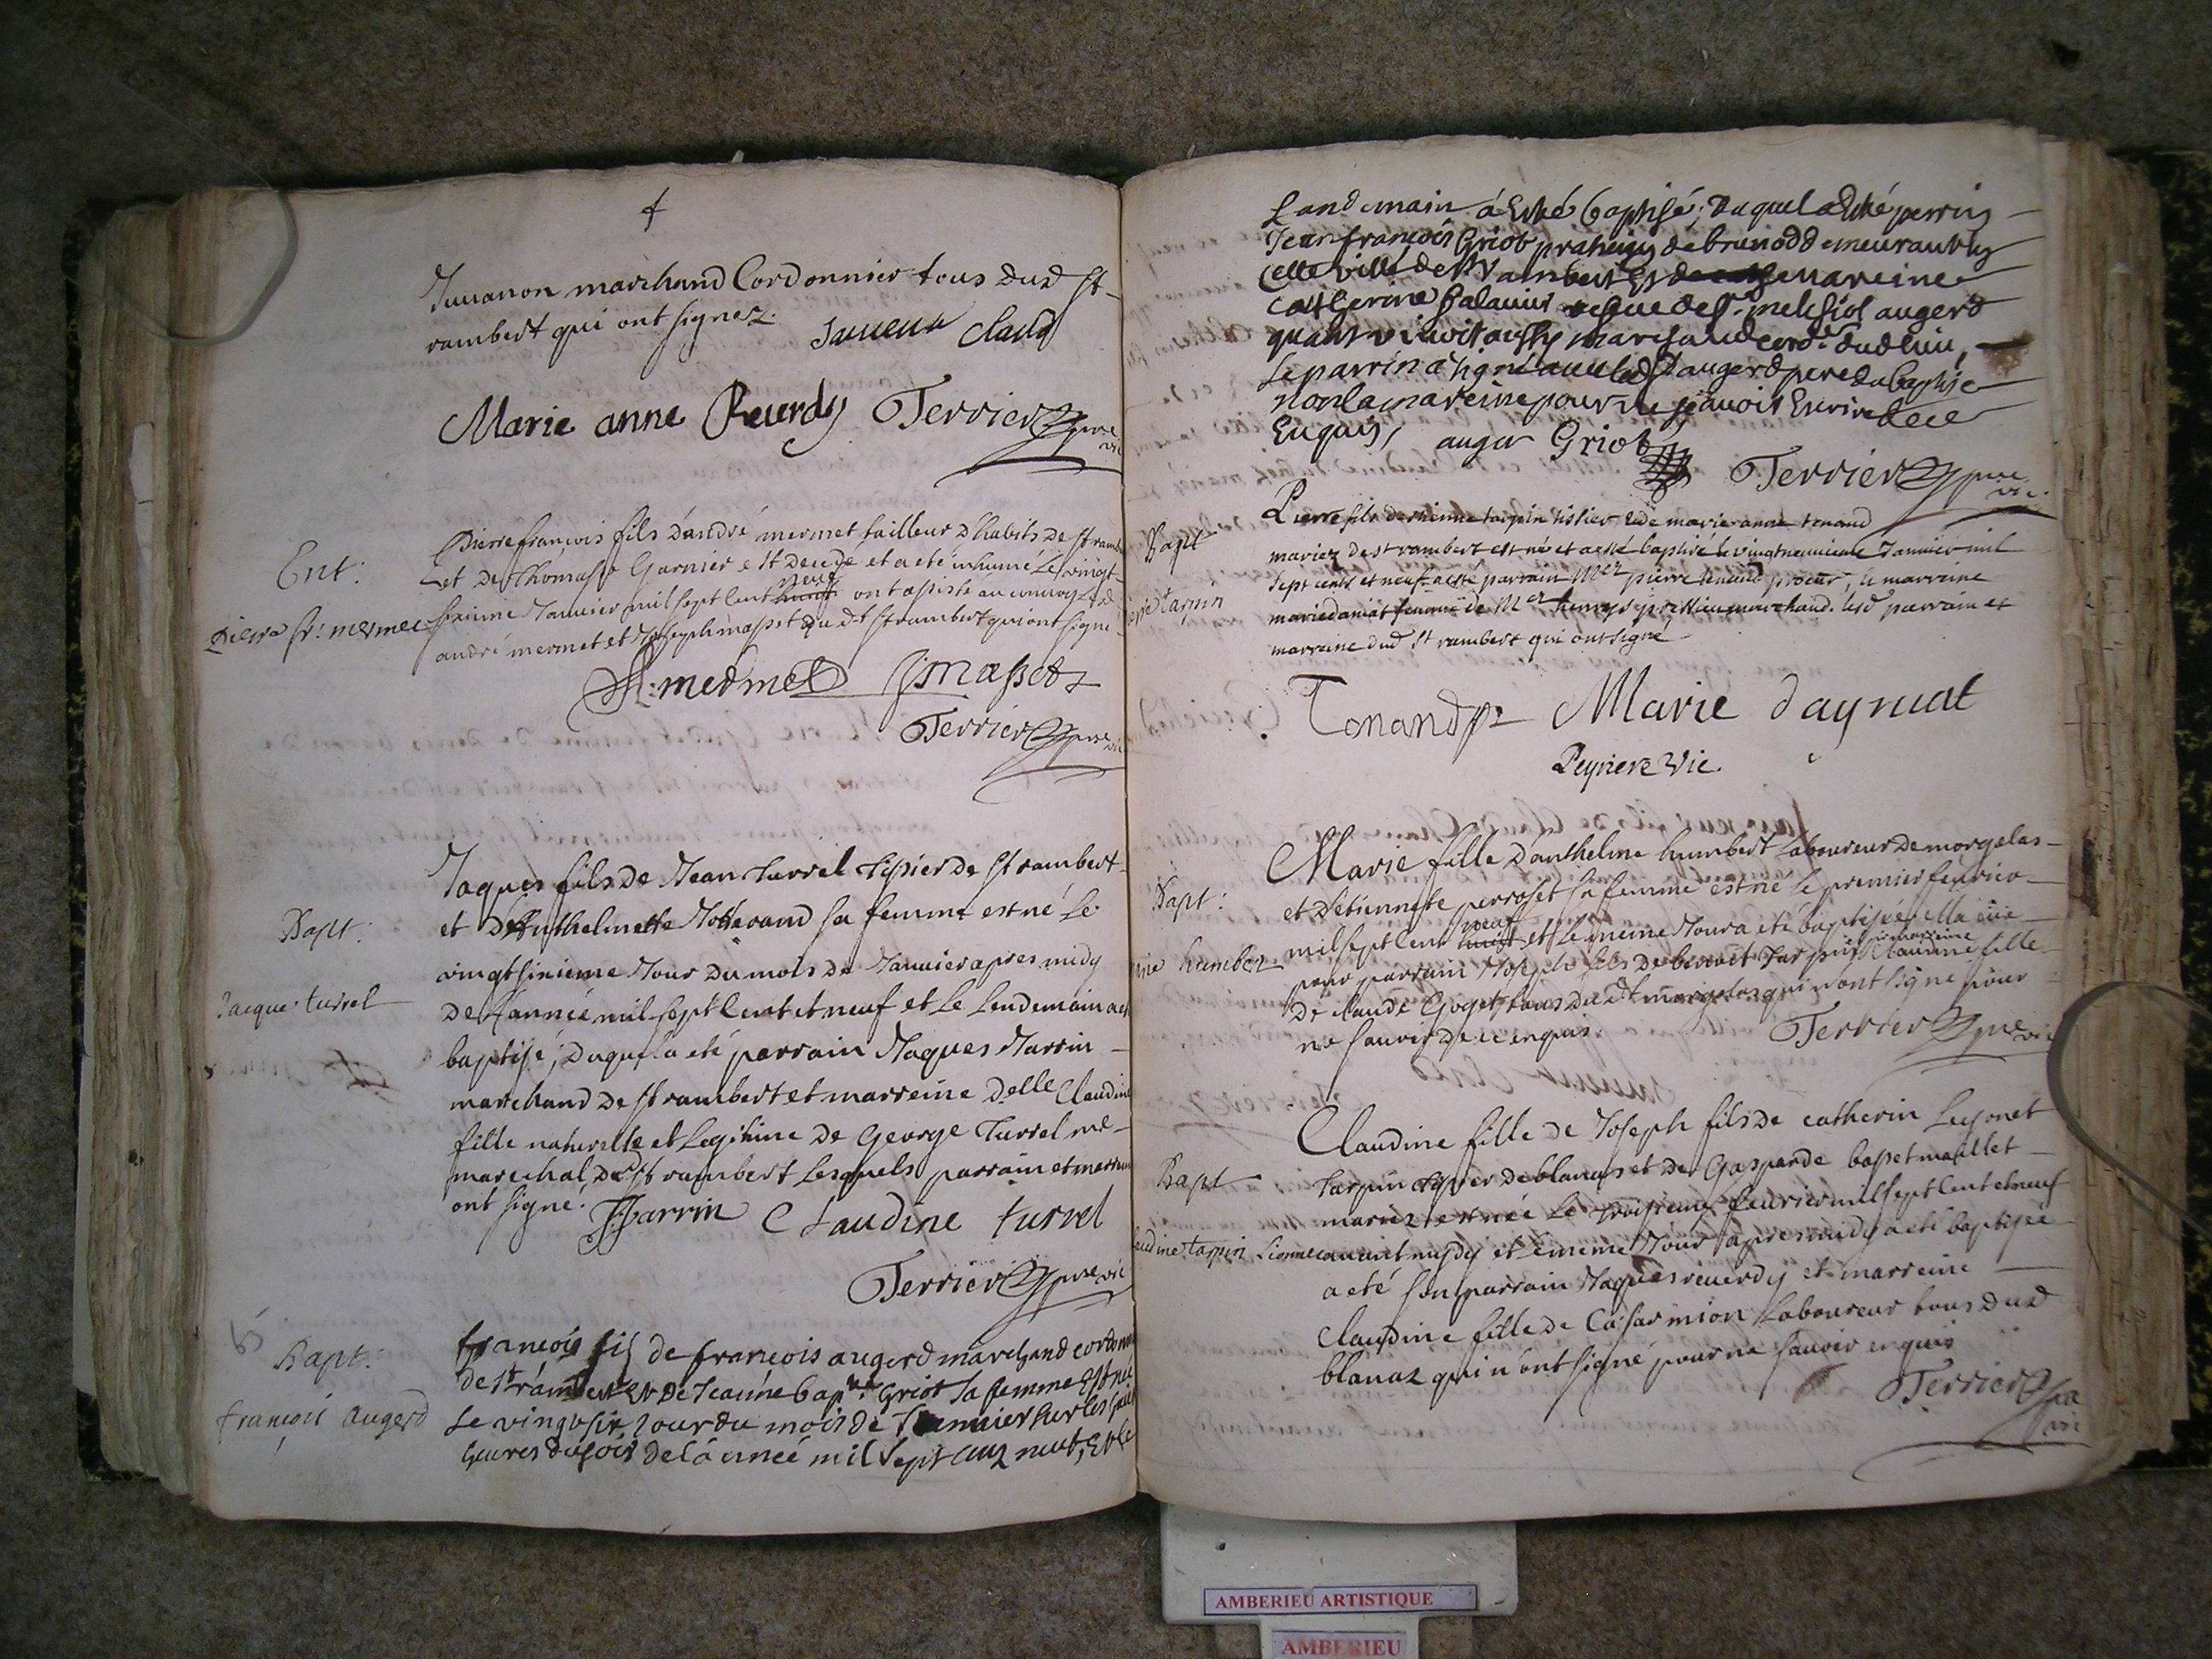 Juuanon marchand Cordonnier tous dud St
rambert qui ont signez.
Juueua Claud
Marie anne Reuerdy Terrier pre
vic
Ent:
Pierre fr: mermet
Pierre francois fils d'andré mermet tailleur d'habits de St ramb
et de Thomasse Garnier est decedé et a eté inhumé le vingt
sixieme Januier mil sept cent neuf ont assisté au conuoy led
andré mermet et Joseph masset du dt St rambert qui ont signé
A: mermet J masset
Terrier pre
vic
Bapt:
Jacque turrel
Jaques fils de Jean Turrel tissier de St rambert
et d'Anthelmette sa femme est né le
vingt sixieme Jour du mois de Januier apres midy
de l'année mil sept cent et neuf et le lendemain a eté
baptisé; duquel a eté parrain Jaques Jarrin
marchand de St rambert et marreine delle Claudine
fille naturelle et legitime de George Turrel me
marechal dud St rambert lesquels parrain et marreine
ont signé.
Jarrin Claudine turrel
Terrier pre vic
Bapt:
françois Augerd
françois fis de françois augerd marchand cordon
de St rambert et de Jeanne bapte Griot sa femme est né
Le vingt six Jour du mois de Januier sur les
heures du soir de lánneé mil sept neuf, et le
Landemain á esté baptisé; duquel a esté perrin
Jean françois Griot praticien de brenod demeurant en
cette ville de St rambert et mareine
catherine de Sr melchiol augerd
quand viuoit aussy marchand cordr dud lieu,
Le parrin a signé auec led Sr augerd pere du baptisé
non la mareine pour ne sçauoir Escrire de ce
Enquis,
auger Griot
Terrier pre
vic.
Bapt
tarpin
Pierre fils destienne tarpin tissier et de marie anne tenand
mariez de st rambert est né et a esté baptisé le vingtneuuieme Januier mil
sept cents et neuf a esté parrain Mer pierre tenand procur, la marreine
marie daniat femme de Mer marchand. lesd parrain et
marreine dud St rambert qui ont signé
Tenand pr Marie daymat
Peyriere Vic.
Bapt:
humber
Marie fille d'anthelme humbert laboureur de morgelas
et d'etiennete perroset sa femme est né le premier feurier
mil sept cent neuf et le meme Jour a eté baptisée ella eüe
pour parrain Joseph fils de benoit Tarpin et marreine Claudine fille
de claude Goget tous du dt morgelas qui n'ont signé pour
ne sauoir de ce enquis
Terrier pre
vic
Bapt
Claudine tarpin
Claudine fille de Joseph fils de catherin
Tarpin tissier de blanas et de Gasparde basset maillet
mariez est née le troisieme feurier mil sept cent et neuf
auant mydy et le meme Jour apres midy a eté baptisée
a eté son parrain Jaques reuerdy et marreine
Claudine fille de Cæsar mion Laboureur tous dud
blanaz qui n'ont signé pour ne sauoir enquis
Terrier
vic
AMBERIEU ARTISTIQUE
AMBERIEU